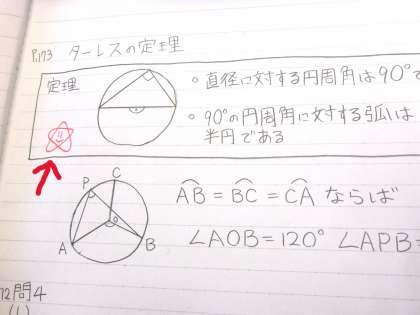 P.173 ターレスの定理
定理
◦ 直径に対する円周角は90°で
◦ 90°の円周角に対する弧は
半円である
P C
A B
O
AB = BC = CA ならば
∠AOB = 120° ∠APB =
72問4
(1)